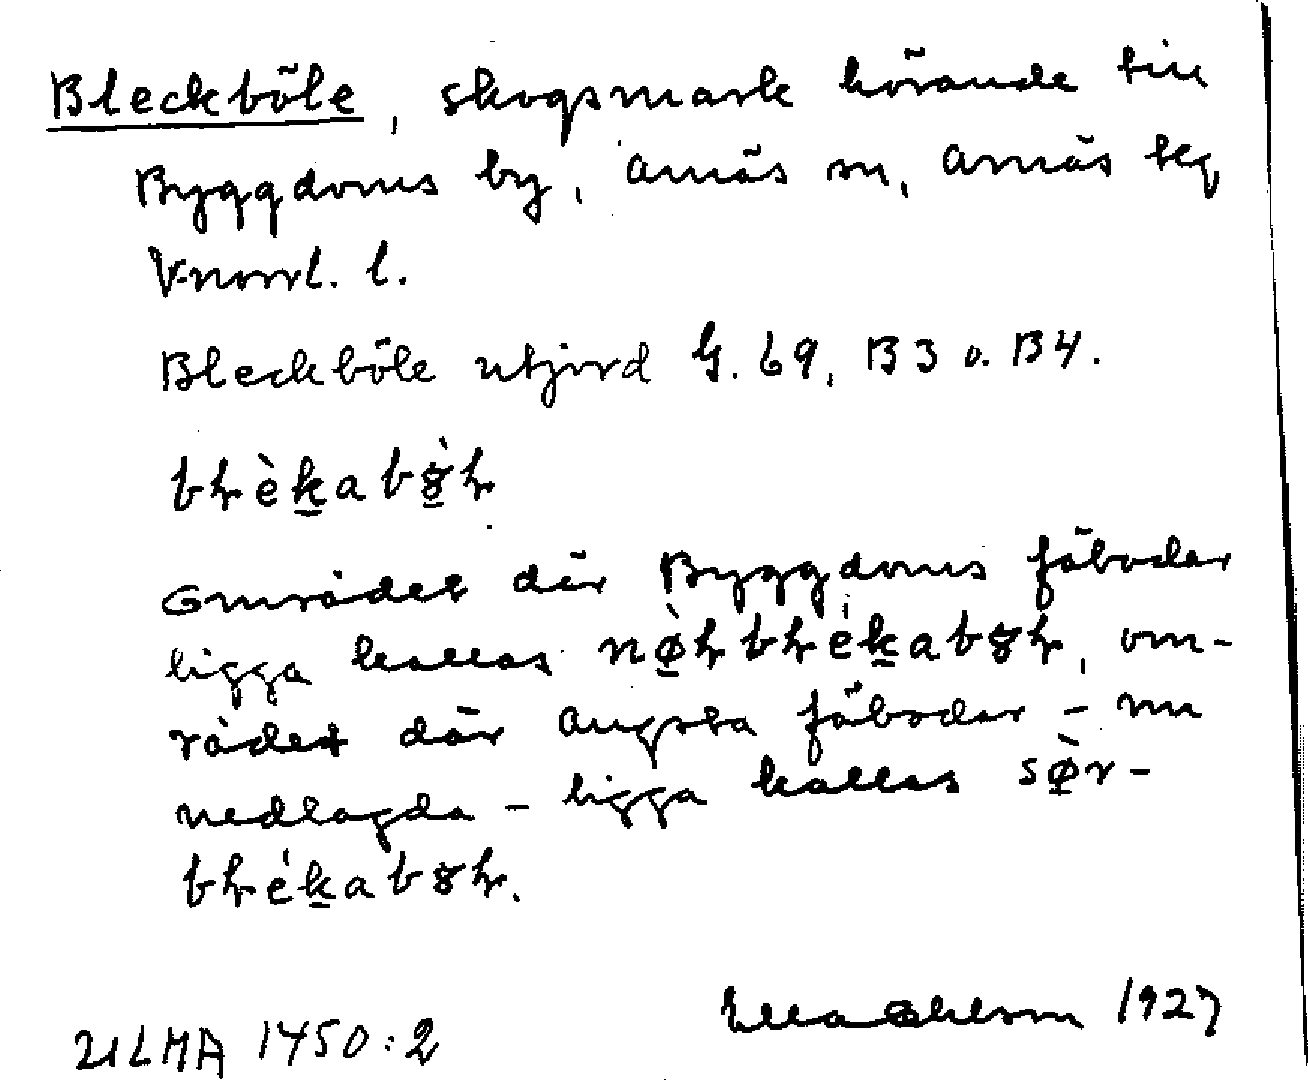 Bleckböle, skogsmark hörande till
Byggdoms by, Arnäs sn, Arnäs tlg
V-norrl. l.
Bleckböle utjord G. 69, B3 o. B4.
området där Byggdoms fäbodar
ligga kallas om-
rådet där Augsta fäbodar – nu
nedlagda – ligga kallas sø̀r-
Ella Ohlson 1927
ULMA 1450:2